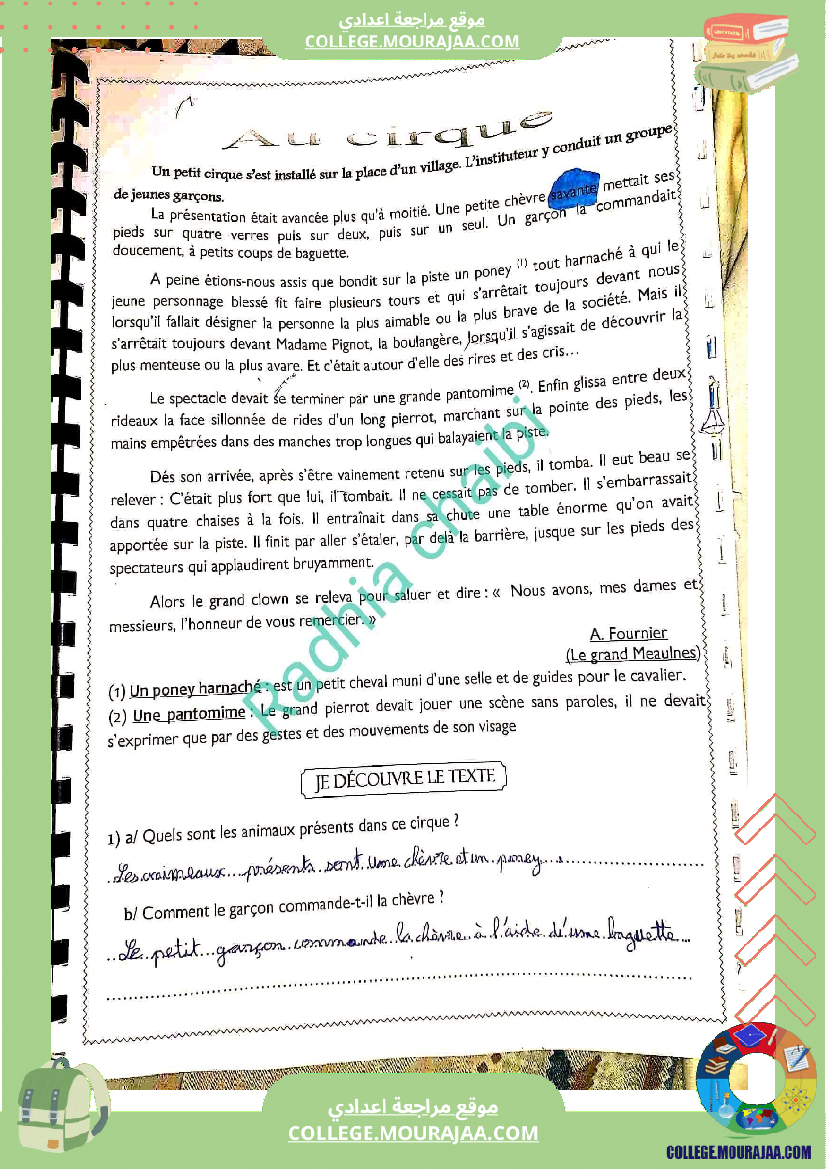 موقع مراجعة اعدادي
COLLEGE.MOURAJAA.COM
Au cirque
Un petit cirque s'est installé sur la place d'un village. L'instituteur y conduit un groupe
de jeunes garçons.
La présentation était avancée plus qu'à moitié. Une petite chèvre savante mettait ses
pieds sur quatre verres puis sur deux, puis sur un seul. Un garçon la commandait
doucement, à petits coups de baguette.
A peine étions-nous assis que bondit sur la piste un poney (1) tout harnaché à qui le
jeune personnage blessé fit faire plusieurs tours et qui s'arrêtait toujours devant nous
lorsqu'il fallait désigner la personne la plus aimable ou la plus brave de la société. Mais il
s'arrêtait toujours devant Madame Pignot, la boulangère, lorsqu'il s'agissait de découvrir la
plus menteuse ou la plus avare. Et c'était autour d'elle des rires et des cris...
Le spectacle devait se terminer par une grande pantomime (2). Enfin glissa entre deux
rideaux la face sillonnée de rides d'un long pierrot, marchant sur la pointe des pieds, les
mains empêtrées dans des manches trop longues qui balayaient la piste.
Dés son arrivée, après s'être vainement retenu sur les pieds, il tomba. Il eut beau se
relever : C'était plus fort que lui, il tombait. Il ne cessait pas de tomber. Il s'embarrassait
dans quatre chaises à la fois. Il entraînait dans sa chute une table énorme qu'on avait
apportée sur la piste. Il finit par aller s'étaler, par delà la barrière, jusque sur les pieds des
spectateurs qui applaudirent bruyamment.
Alors le grand clown se releva pour saluer et dire : « Nous avons, mes dames et
messieurs, l'honneur de vous remercier. »
A. Fournier
(Le grand Meaulnes)
(1) Un poney harnaché : est un petit cheval muni d'une selle et de guides pour le cavalier.
(2) Une pantomime : Le grand pierrot devait jouer une scène sans paroles, il ne devait
s'exprimer que par des gestes et des mouvements de son visage
Radhia chaibi
JE DÉCOUVRE LE TEXTE
1) a/ Quels sont les animaux présents dans ce cirque ?
Les animeaux présents sont une chèvre et un poney
b/ Comment le garçon commande-t-il la chèvre ?
Le petit garçon commande la chèvre à l'aide d'une baguette
موقع مراجعة اعدادي
COLLEGE.MOURAJAA.COM
COLLEGE.MOURAJAA.COM